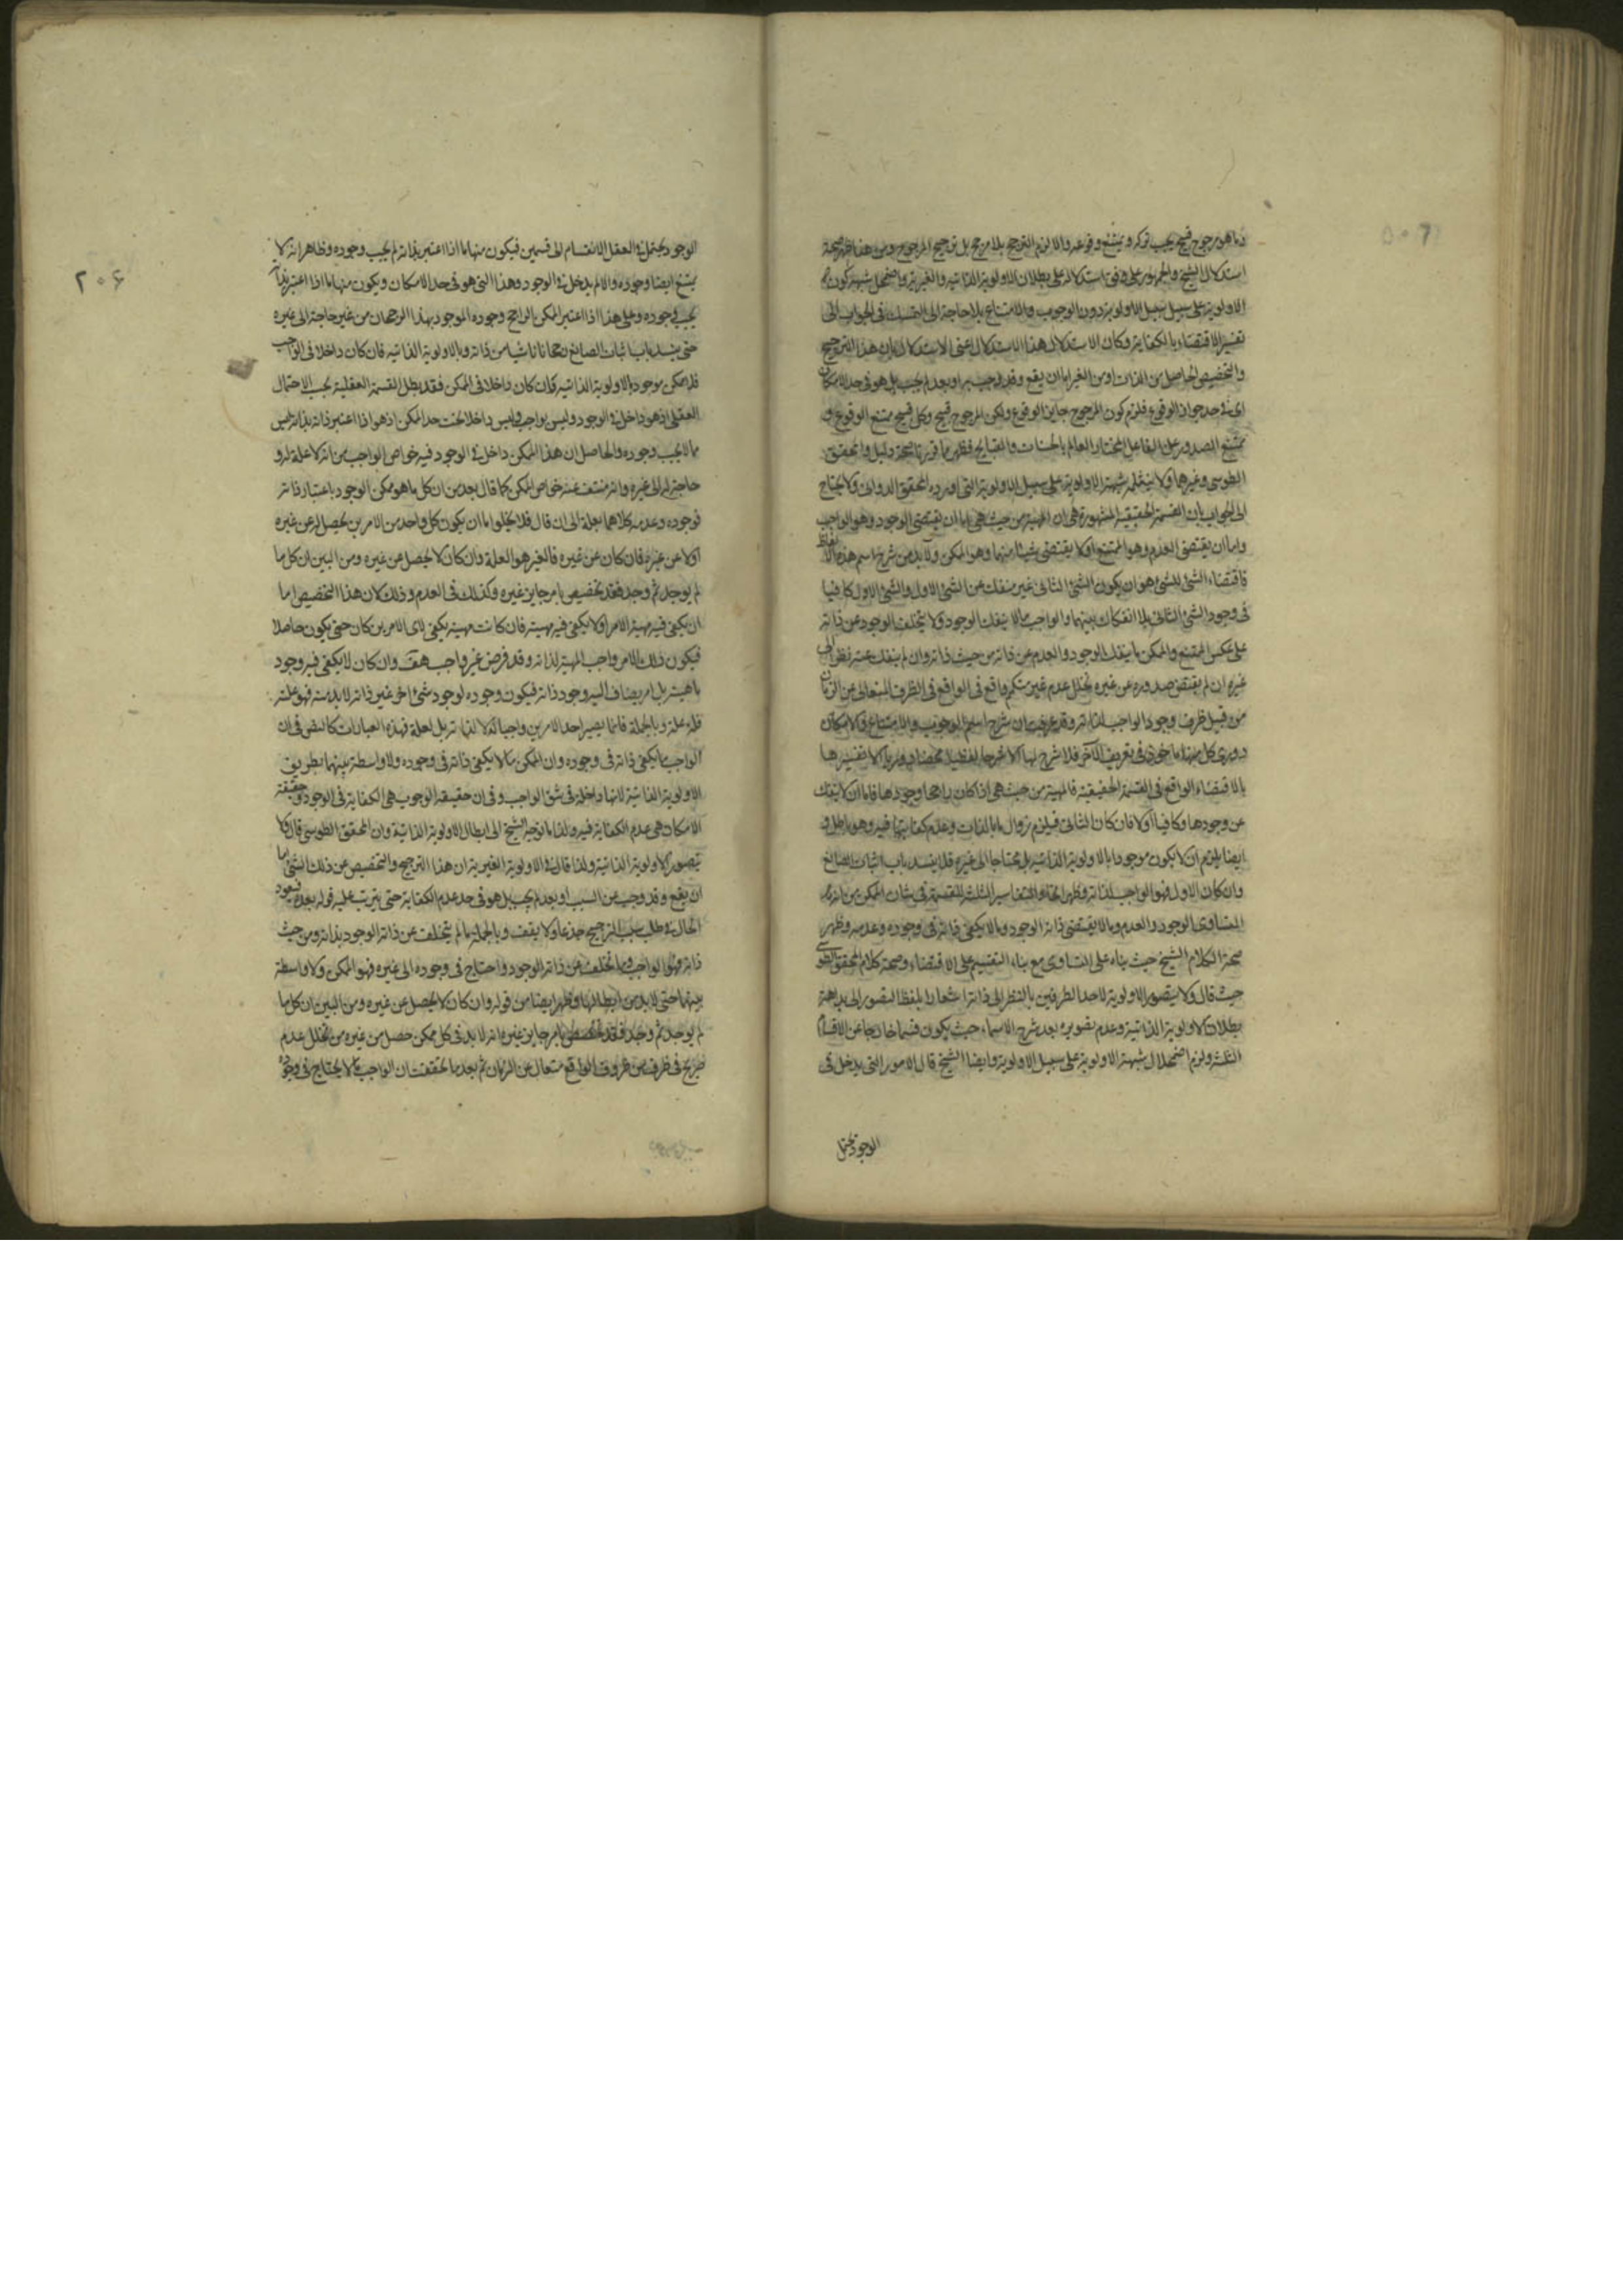 وما هو مرجوح قبيح يجب تركه ويمتنع وقوعه والا لزم الترجيح بلا مرجح بل ترجيح المرجوح ومن هذا ظهر صحة
استدلال الشيخ والجمهور على وفق استدلاله على بطلان الاولوية الذاتية والغيرية واضمحل شبهة كون
الاولوية على سبيل الاولوية دون الوجوب والامتناع بلا حاجة الى التمسك في الجواب الى
تفسير الاقتضاء بالكفاية وكان الاستدلال هذا الاستدلال اعنى الاستدلال بان هذا الترجيح
والتخصيص الحاصل من الذات او من الغير اما ان يقع وقد وجب به او بعد لم يجب بل هو في حد الامكان
اى في حد جواز الوقوع فلزم كون المرجوح جايز الوقوع ولكن المرجوح قبيح وكل قبيح ممتنع الوقوع و
ممتنع الصدور عن الفاعل المختار العالم بالحسنات والقبايح فظهر ما قررنا صحة دليل والمحقق
الطوسى وغيرهما ولا ينثلم شبهة الاولوية على سبيل الاولوية التى اورده المحقق الدوانى ولا يحتاج
الى الجواب بان القسمة الحقيقية المشهورة هى ان المهية من حيث هى اما ان يقتضى الوجود وهو الواجب
واما ان يقتضى العدم وهو الممتنع او لا يقتضى شيئا منهما وهو الممكن ولا بد من شرح اسم هذه الالفاظ
فاقتضاء الشئ للشئ هو ان يكون الشئ الثانى غير منفك عن الشئ الاول والشئ الاول كافيا
في وجود الشئ الثانى بلا انفكاك بينهما والواجب ما لا ينفك الوجود ولا يتخلف الوجود عن ذاته
على عكس الممتنع والممكن ما ينفك الوجود والعدم عن ذاته من حيث ذاته وان لم ينفك عنه نظرا الى
غيره ان لم يقتض صدوره عن غيره تخلل عدم غير متكمم واقع في الواقع في الظرف المتعالى عن الزمان
من قبيل ظرف وجود الواجب لذاته وقد عرفت ان شرح اسم الوجوب والامتناع والامكان
دورى كل منها ماخوذ في تعريف الآخر فلا شرح لها الا شرحا لفظيا
بالاقتضاء الواقع في القسمة الحقيقية فالمهية من حيث هى اذا كان راجحا وجودها فاما ان لا ينفك
عن وجودها وكافيا او لا فان كان الثانى فيلزم زوال ما بالذات وعدم كفايتها فيه وهو باطل و
ايضا يلزم ان لا يكون موجودا بالاولوية الذاتية بل محتاجا الى غيره فلا ينسد باب اثبات الصانع
وان كان الاول فهو الواجب لذاته وظهر التفاسير الثلثة للقسمة في شان الممكن من انه
المتساوى الوجود والعدم وما لا يقتضى ذاته الوجود وما لا يكفى ذاته في وجوده وعدمه وظهر
صحة الكلام الشيخ حيث بناه على التساوى مع بناء التقسيم على الاقتضاء وصحة كلام المحقق الطوسى
حيث قال ولا يتصور الاولوية لاحد الطرفين بالنظر الى ذاته اشعارا بلفظ التصور الى بداهة
بطلان الاولوية الذاتية وعدم تصويره بعد شرح الاسماء حيث يكون قسما خارجا عن الاقسام
الثلثة ولزم اضمحلال شبهة الاولوية على سبيل الاولوية وايضا الشيخ قال الامور التى يدخل في
الوجود يحتمل
٢٠۶
الوجود يحتمل في العقل الانقسام الى قسمين فيكون منها ما اذا اعتبر بذاته لم يجب وجوده وظاهر انه لا
يمتنع ايضا وجوده والا لم يدخل في الوجود وهذا الشئ هو في حد الامكان ويكون منها ما اذا اعتبر بذاته
يجب وجوده وعلى هذا اذا اعتبر الممكن الراجح وجوده الموجود بهذا الرجحان من غير حاجة الى غيره
حتى ينسد باب اثبات الصانع رجحانا ناشيا من ذاته وبالاولوية الذاتية فان كان داخلا في الواجب
فلا ممكن موجود بالاولوية الذاتية وان كان داخلا في الممكن فقد بطل القسمة العقلية بحسب الاحتمال
العقلى اذ هو داخل في الوجود وليس بواجب وليس داخلا تحت حد الممكن اذ هو اذا اعتبر ذاته بذاته ليس
ما لا يجب وجوده والحاصل ان هذا الممكن داخل في الوجود فيه خواص الواجب من انه لا علة له و
حاجة له الى غيره وانه منتف عنه خواص الممكن كما قال بعد من ان كل ما هو ممكن الوجود باعتبار ذاته
فوجوده وعدمه كلاهما بعلة الى ان قال فلا يخلوا اما ان يكون كل واحد من الامرين يحصل له عن غيره
او لا عن غيره فان كان عن غيره فالغير هو العلة وان كان لا يحصل عن غيره ومن البين ان كل ما
لم يوجد ثم وجد فقد تخصص بامر جايز غيره وكذلك في العدم وذلك لان هذا التخصيص اما
ان يكفى فيه مهية الامر او لا يكفى فيه مهيته فان كانت مهيته يكفى لاى الامرين كان حتى يكون حاصلا
فيكون ذلك الامر واجب المهية لذاته وقد فرض غير واجب هف وان كان لا يكفى فيه وجود
ماهيته بل امر يضاف اليه وجود ذاته فيكون وجوده لوجود شئ اخر غير ذاته لا بد منه فهو علته
فله علة وبالجملة فانما يصير احد الامرين واجبا له لا لذاته بل لعلة فهذه العبارات كالنص في ان
الواجب ما يكفى ذاته في وجوده وان الممكن ما لا يكفى ذاته في وجوده ولا واسطة بينهما بطريق
الاولوية الذاتية لانها داخلة في شق الواجب وفي ان حقيقة الوجوب هى الكفاية في الوجود وحقيقة
الامكان هى عدم الكفاية فيه ولذا ما توجه الشيخ الى ابطال الاولوية الذاتية وان المحقق الطوسى قال ولا
يتصور الاولوية الذاتية ولذا قال في الاولوية الغيرية ان هذا الترجيح والتخصيص عن ذلك الشئ اما
ان يقع وقد وجب عن السبب او بعد لم يجب بل هو في حد عدم الكفاية حتى يترتب عليه قوله بعده فيعود
الحال في طلب سبب الترجيح جذعا ولا يقف وبالجملة ما لم يتخلف عن ذاته الوجود بذاته ومن حيث
ذاته فهو الواجب وما تخلف عن ذاته الوجود واحتاج في وجوده الى غيره فهو الممكن ولا واسطة
بينهما حتى لا بد من ابطالها وظهر ايضا من قوله وان كان لا يحصل عن غيره ومن البين ان كل ما
لم يوجد ثم وجد فقد تخصص بامر جايز غيره انه لا بد في كل ممكن حصل من غيره من تخلل عدم
صريح في ظرف من ظروف الواقع متعال عن الزمان ثم بعد ما تحققت ان الواجب ما لا يحتاج في وجوده